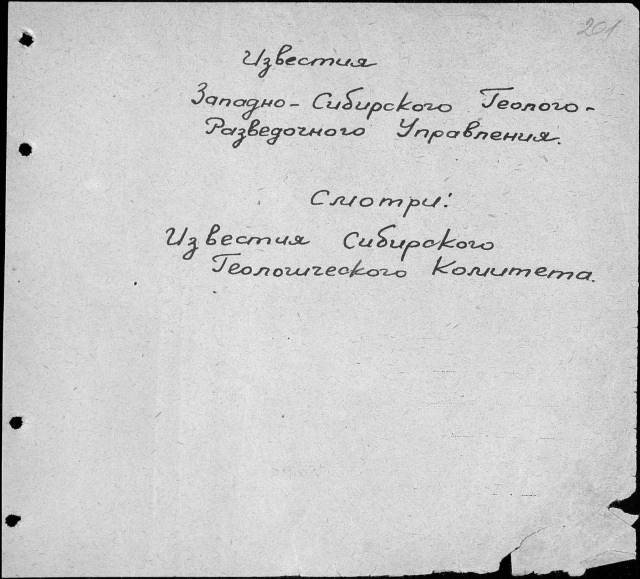 201
Известия
Западно-Сибирского Геолого-
Разведочного Управления.
Смотри:
Известия Сибирского
Геологического Комитета.